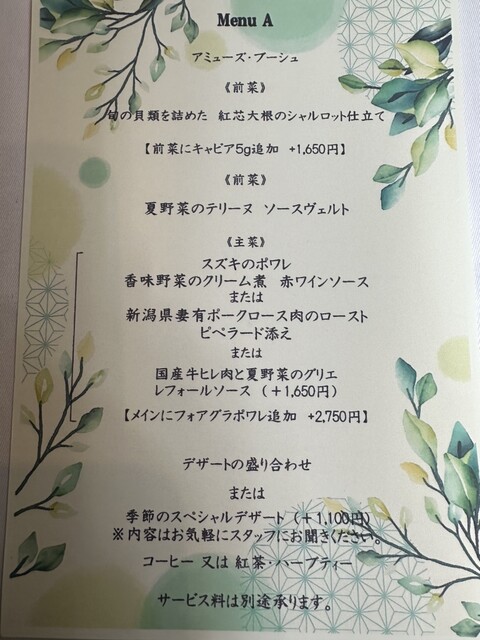 Menu A
アミューズ・ブーシュ
《前菜》
旬の貝類を詰めた 紅芯大根のシャルロット仕立て
【前菜にキャビア5g追加 +1,650円】
《前菜》
夏野菜のテリーヌ ソースヴェルト
《主菜》
スズキのポワレ
香味野菜のクリーム煮 赤ワインソース
または
新潟県妻有ポークロース肉のロースト
ピペラード添え
または
国産牛ヒレ肉と夏野菜のグリエ
レフォールソース (+1,650円)
【メインにフォアグラポワレ追加 +2,750円】
デザートの盛り合わせ
または
季節のスペシャルデザート (+1,100円)
※内容はお気軽にスタッフにお聞きください。
コーヒー 又は 紅茶・ハーブティー
サービス料は別途承ります。